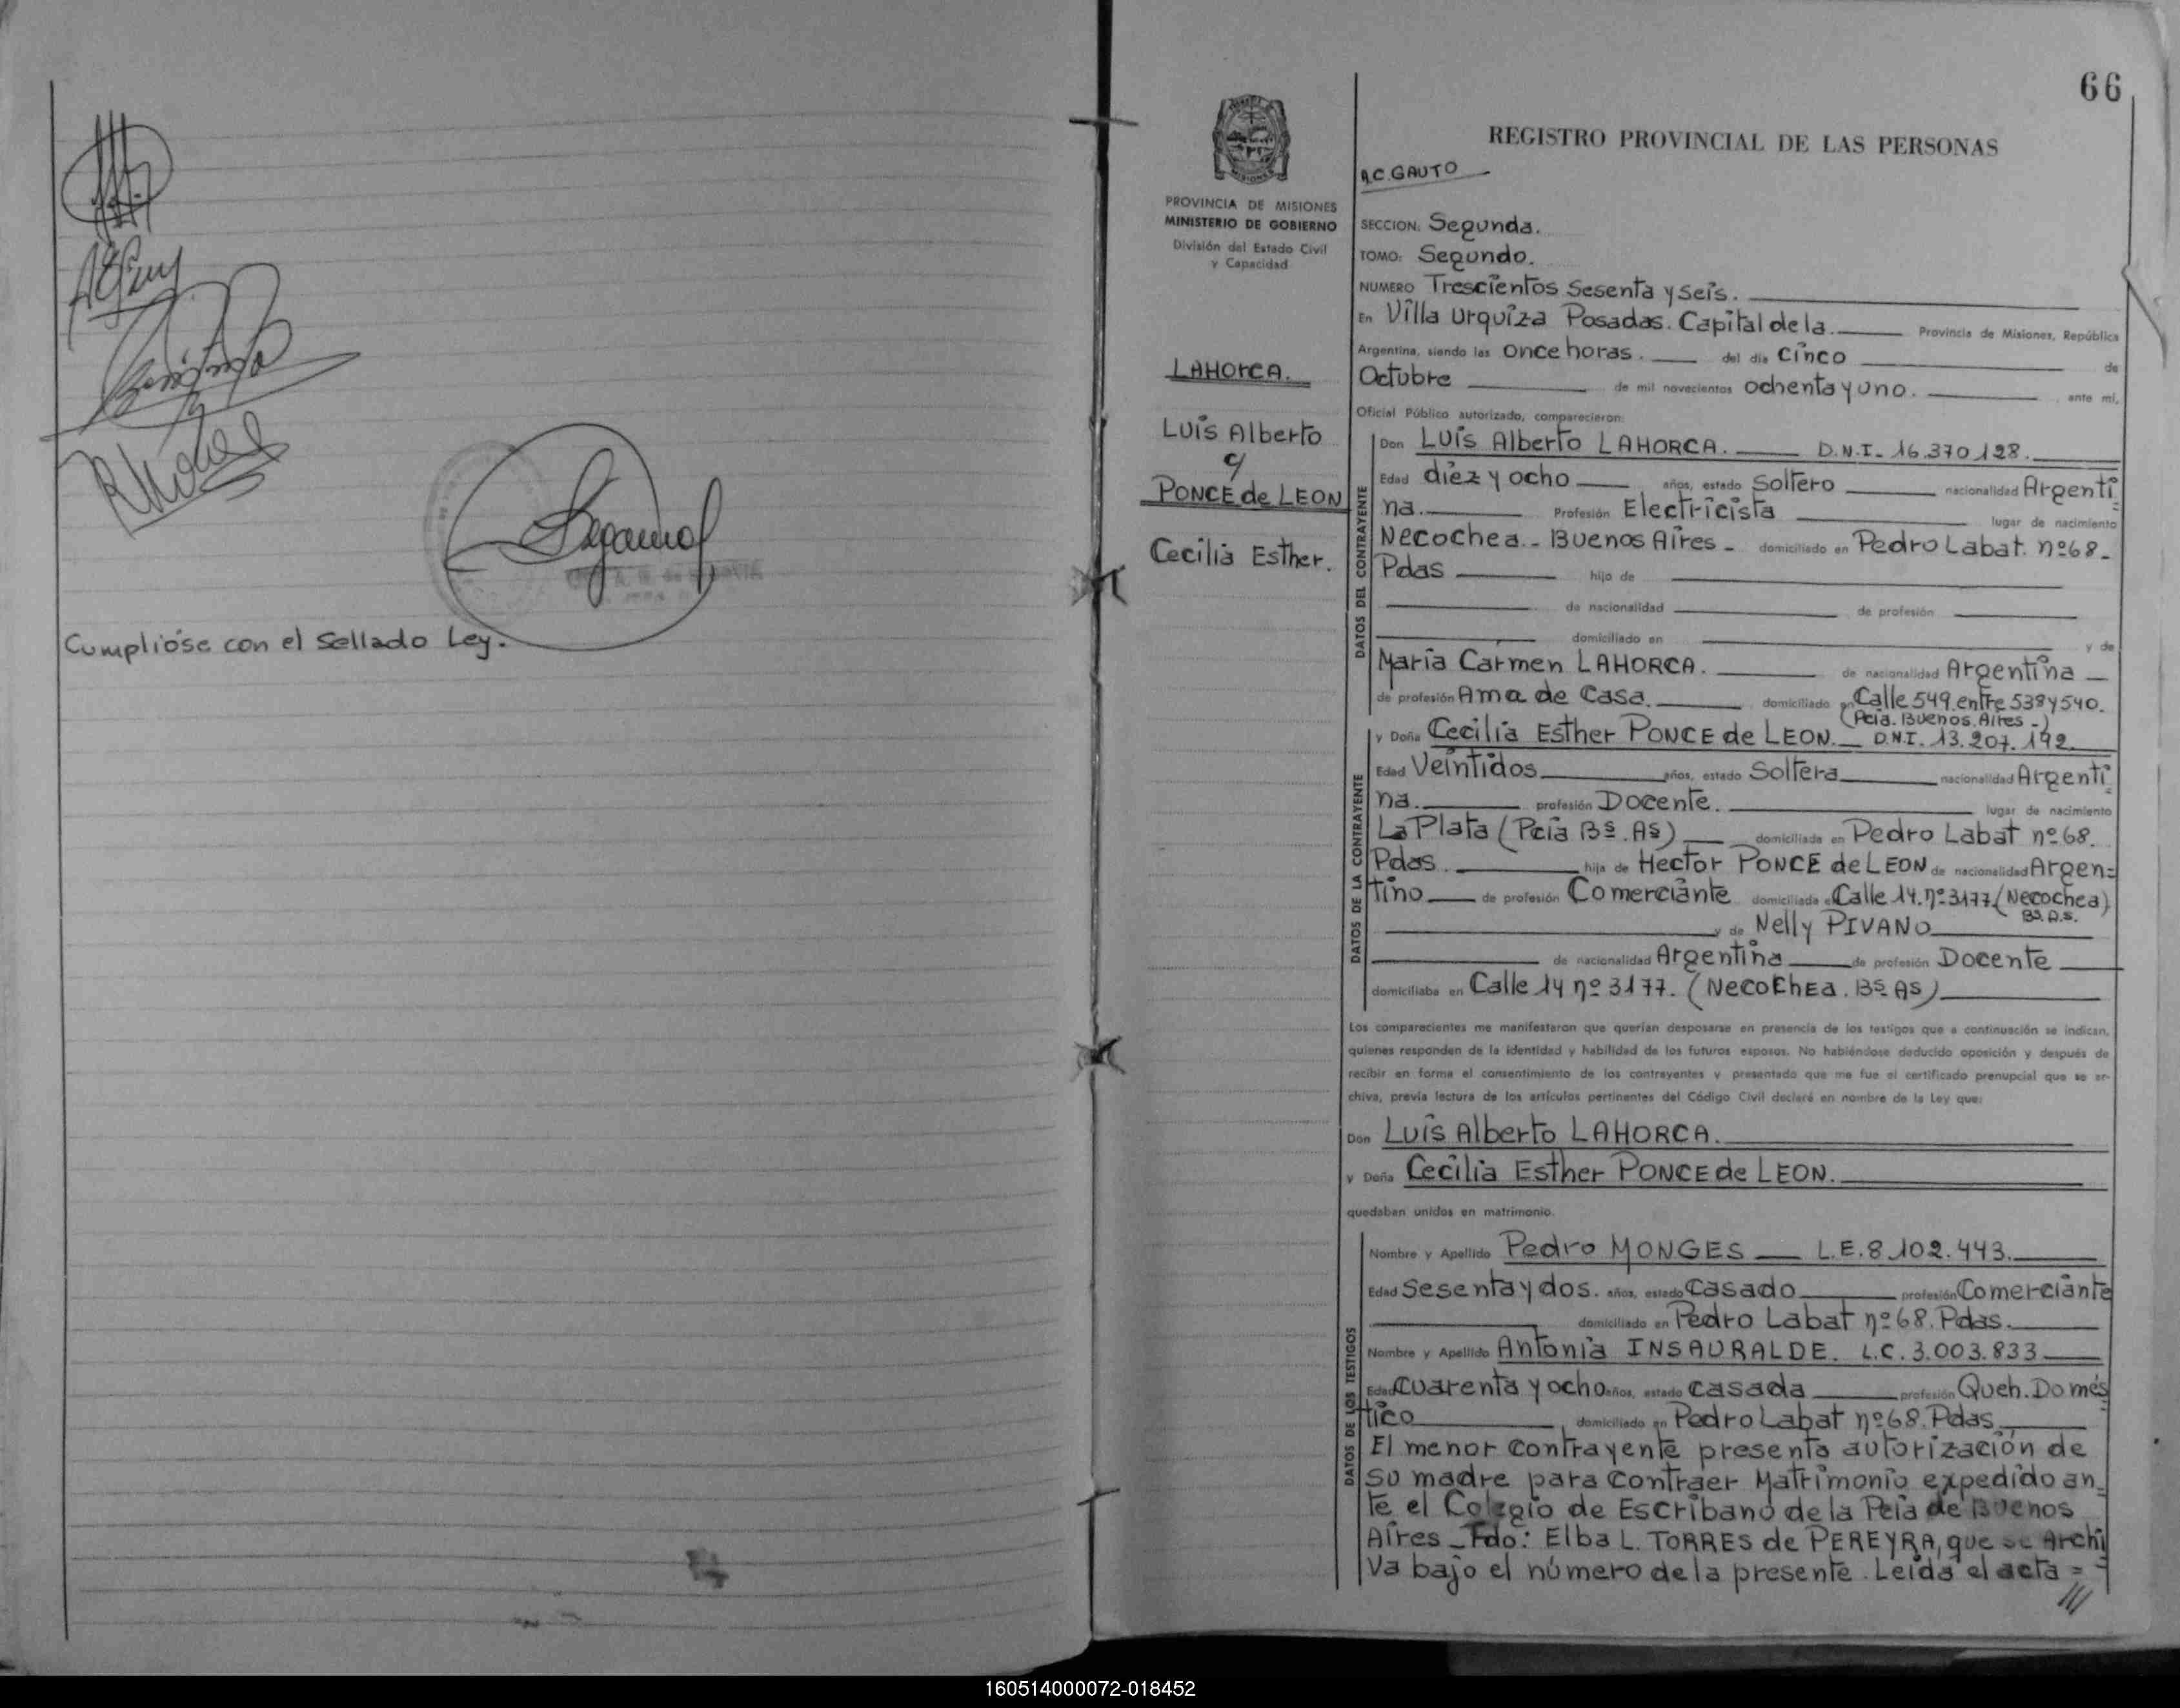 Cumplióse con el Sellado Ley.
66
REGISTRO PROVINCIAL DE LAS PERSONAS
A.C. GAUTO
PROVINCIA DE MISIONES
MINISTERIO DE GOBIERNO
División del Estado Civil
y Capacidad
LAHORCA.
Luis Alberto
PONCE de LEON
Cecilia Esther.
SECCION: Segunda.
TOMO: Segundo.
NUMERO Trescientos Sesenta y Seis.
En Villa Urquiza Posadas. Capital de la. Provincia de Misiones, República
Argentina, siendo las once horas. del dia Cinco de
Octubre de mil novecientos ochenta y uno. , ante mí,
Oficial Público autorizado, comparecieron:
DATOS DEL CONTRAYENTE
Don Luis Alberto LAHORCA. D.N.I. 16.370.128.
Edad diez y ocho años, estado Soltero nacionalidad Argenti
na. Profesión Electricista lugar de nacimiento
Necochea - Buenos Aires - domiciliado en Pedro Labat. nº 68-
Pdas hijo de
de nacionalidad de profesión
domiciliado en y de
María Carmen LAHORCA. de nacionalidad Argentina
de profesión Ama de Casa. domiciliado en Calle 549 entre 538 y 540.
(Pcia. Buenos Aires -)
DATOS DE LA CONTRAYENTE
y Doña Cecilia Esther PONCE de LEON. D.N.I. 13.207.192.
Edad Veintidos años, estado Soltera nacionalidad Argenti
na. profesión Docente. lugar de nacimiento
La Plata (Pcia Bs. As) domiciliada en Pedro Labat nº 68.
Pdas. hija de Hector PONCE de LEON de nacionalidad Argen=
tino de profesión Comerciante domiciliado Calle 14. nº 3177 (Necochea)
Bs. A.s.
y de Nelly PIVANO
de nacionalidad Argentina de profesión Docente
domiciliaba en Calle 14 nº 3177. (Necochea. Bs As)
Los comparecientes me manifestaron que querían desposarse en presencia de los testigos que a continuación se indican,
quienes responden de la identidad y habilidad de los futuros esposos. No habiéndose deducido oposición y después de
recibir en forma el consentimiento de los contrayentes y presentado que me fue el certificado prenupcial que se ar-
chiva, previa lectura de los artículos pertinentes del Código Civil declaré en nombre de la Ley que:
Don Luis Alberto LAHORCA.
y Doña Cecilia Esther PONCE de LEON.
quedaban unidos en matrimonio.
DATOS DE LOS TESTIGOS
Nombre y Apellido Pedro MONGES L.E. 8.102.443.
Edad Sesenta y dos. años, estado Casado profesión Comerciante
domiciliado en Pedro Labat nº 68. Pdas.
Nombre y Apellido Antonia INSAURALDE. L.C. 3.003.833
Edad Cuarenta y ocho años, estado casada profesión Queh. Domés
tico domiciliado en Pedro Labat nº 68. Pdas.
El menor contrayente presenta autorización de
su madre para contraer Matrimonio expedido an
te el Colegio de Escribano de la Pcia de Buenos
Aires - Fdo: Elba L. TORRES de PEREYRA, que se Archi
va bajo el número de la presente. Leida el acta =
160514000072-018452